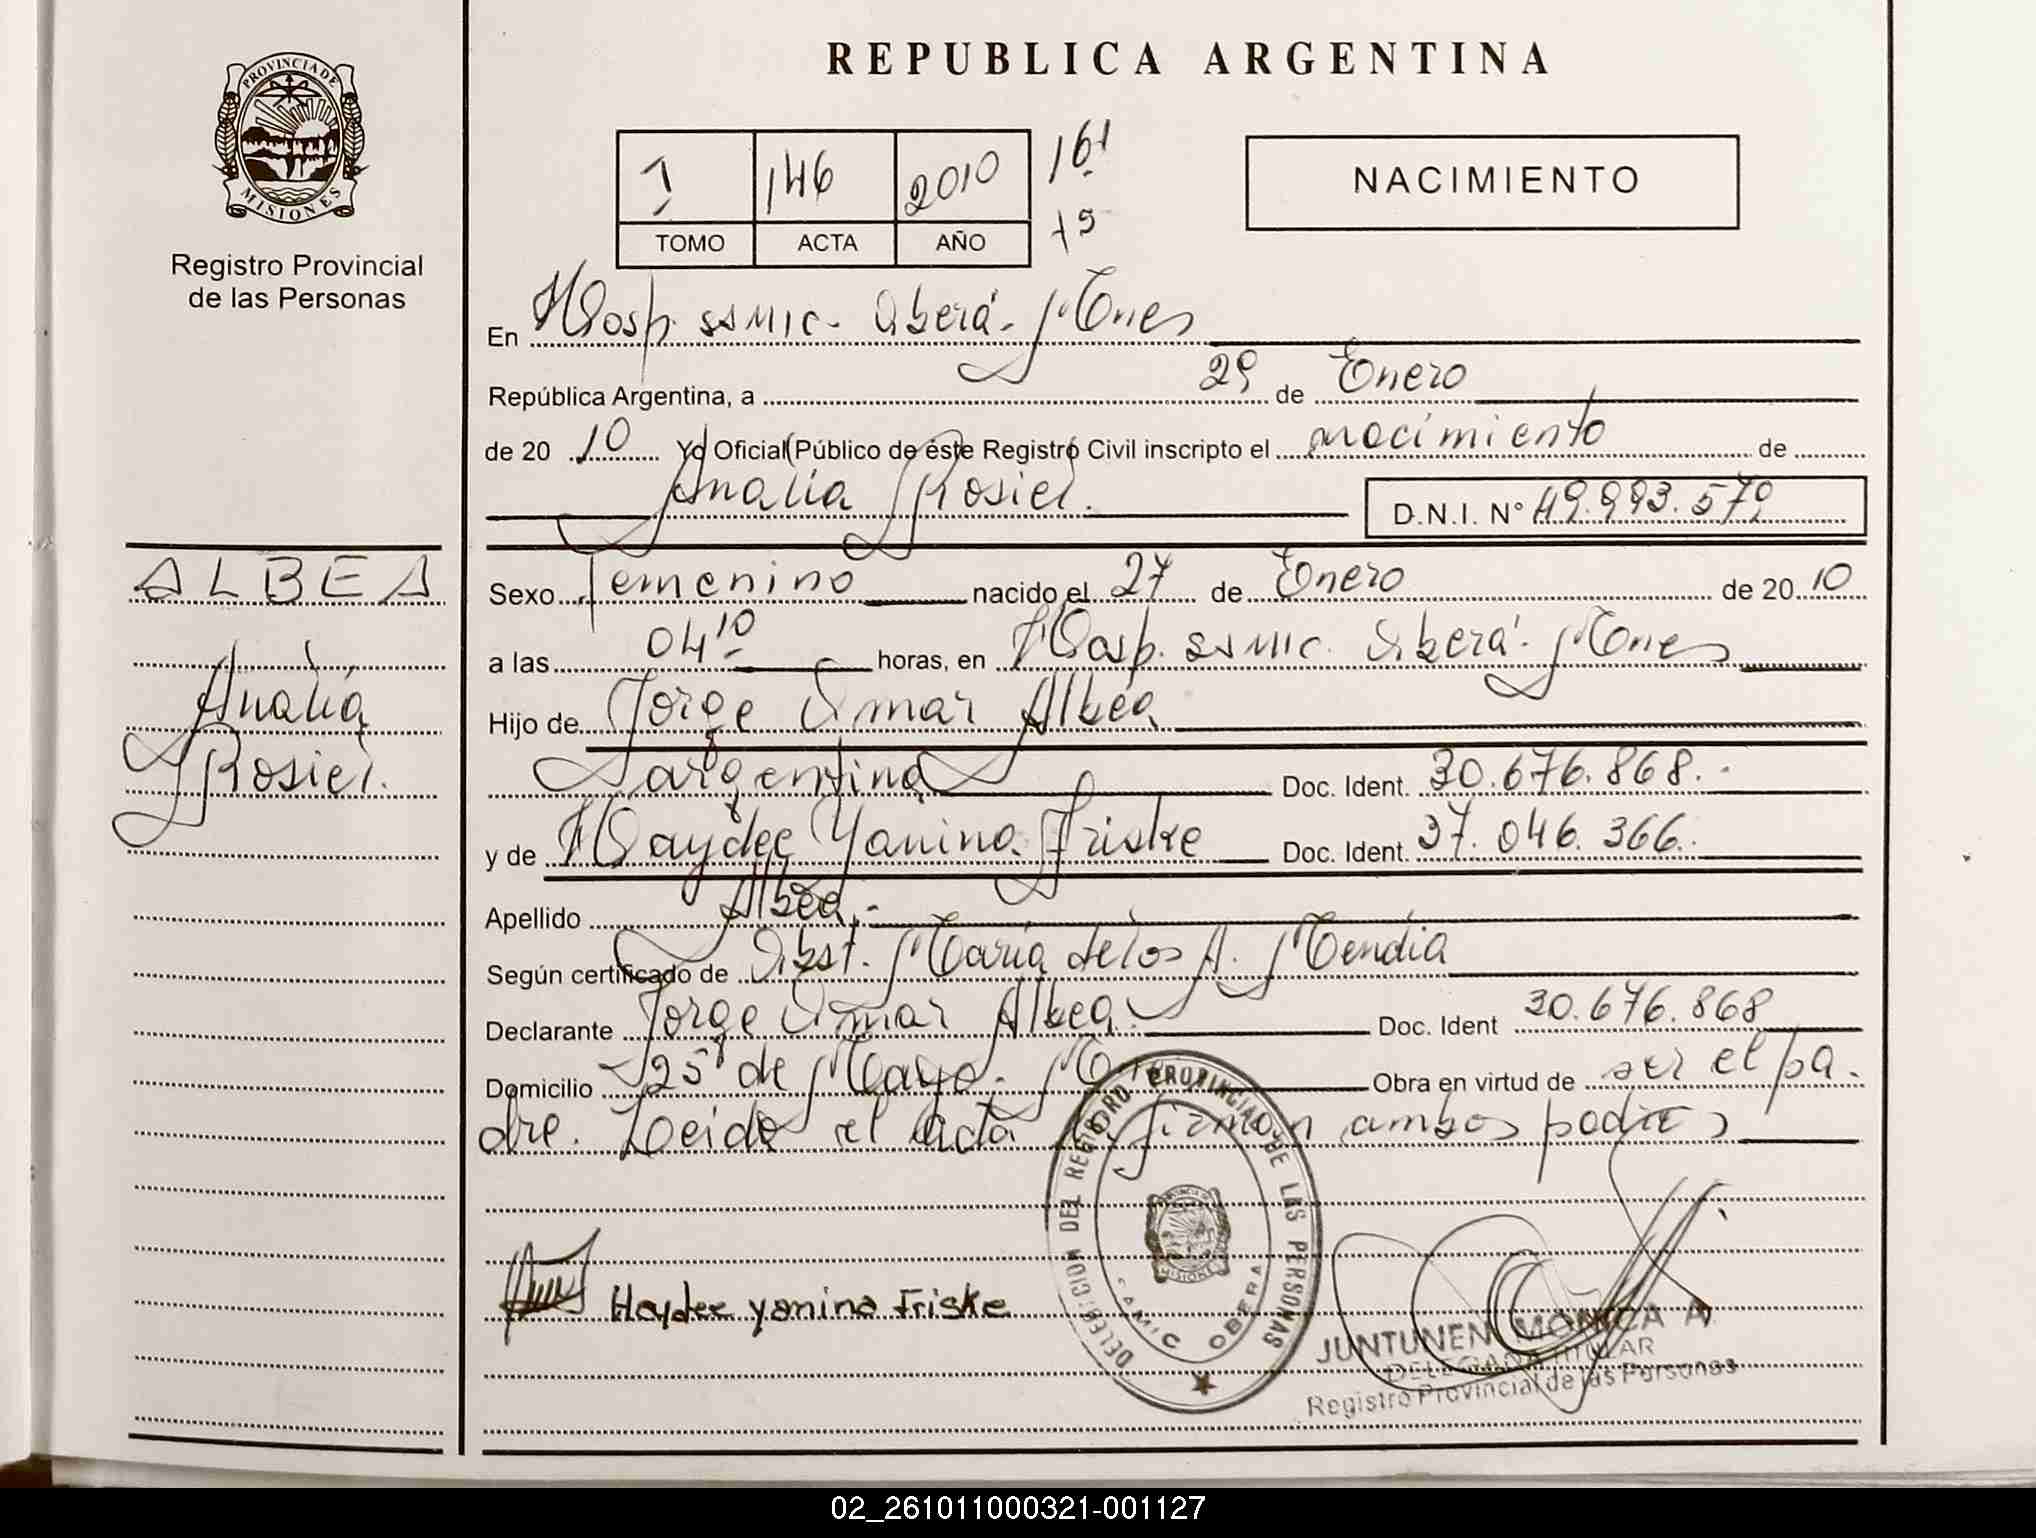 PROVINCIA DE
MISIONES
Registro Provincial
de las Personas
REPUBLICA ARGENTINA
1 146 2010 161
TOMO ACTA AÑO
NACIMIENTO
En Hosp. SAMIC. Oberá. Mnes
República Argentina, a 29 de Enero
de 2010 Yo Oficial Público de éste Registro Civil inscripto el nacimiento de
Analía Rosiel. D.N.I. N° 49.993.579
ALBEA
Analía
Rosiel.
Sexo Femenino nacido el 27 de Enero de 2010
a las 04 10 horas, en Hosp. SAMIC. Oberá. Mnes
Hijo de Jorge Omar Albea
argentina Doc. Ident. 30.676.868.-
y de Haydee Yanina Friske Doc. Ident. 37.046.366.
Apellido Albea.-
Según certificado de Obst. María de los A. Mendia
Declarante Jorge Omar Albea. Doc. Ident 30.676.868
Domicilio 25 de Mayo. Obra en virtud de ser el pa
dre. Leida el acta firman ambos padres
Haydee Yanina Friske
DELEGACION DEL REGISTRO PROVINCIAL DE LAS PERSONAS
SAMIC OBERA
JUNTUNEN MONICA A.
DELEGADA TITULAR
Registro Provincial de las Personas
02_261011000321-001127